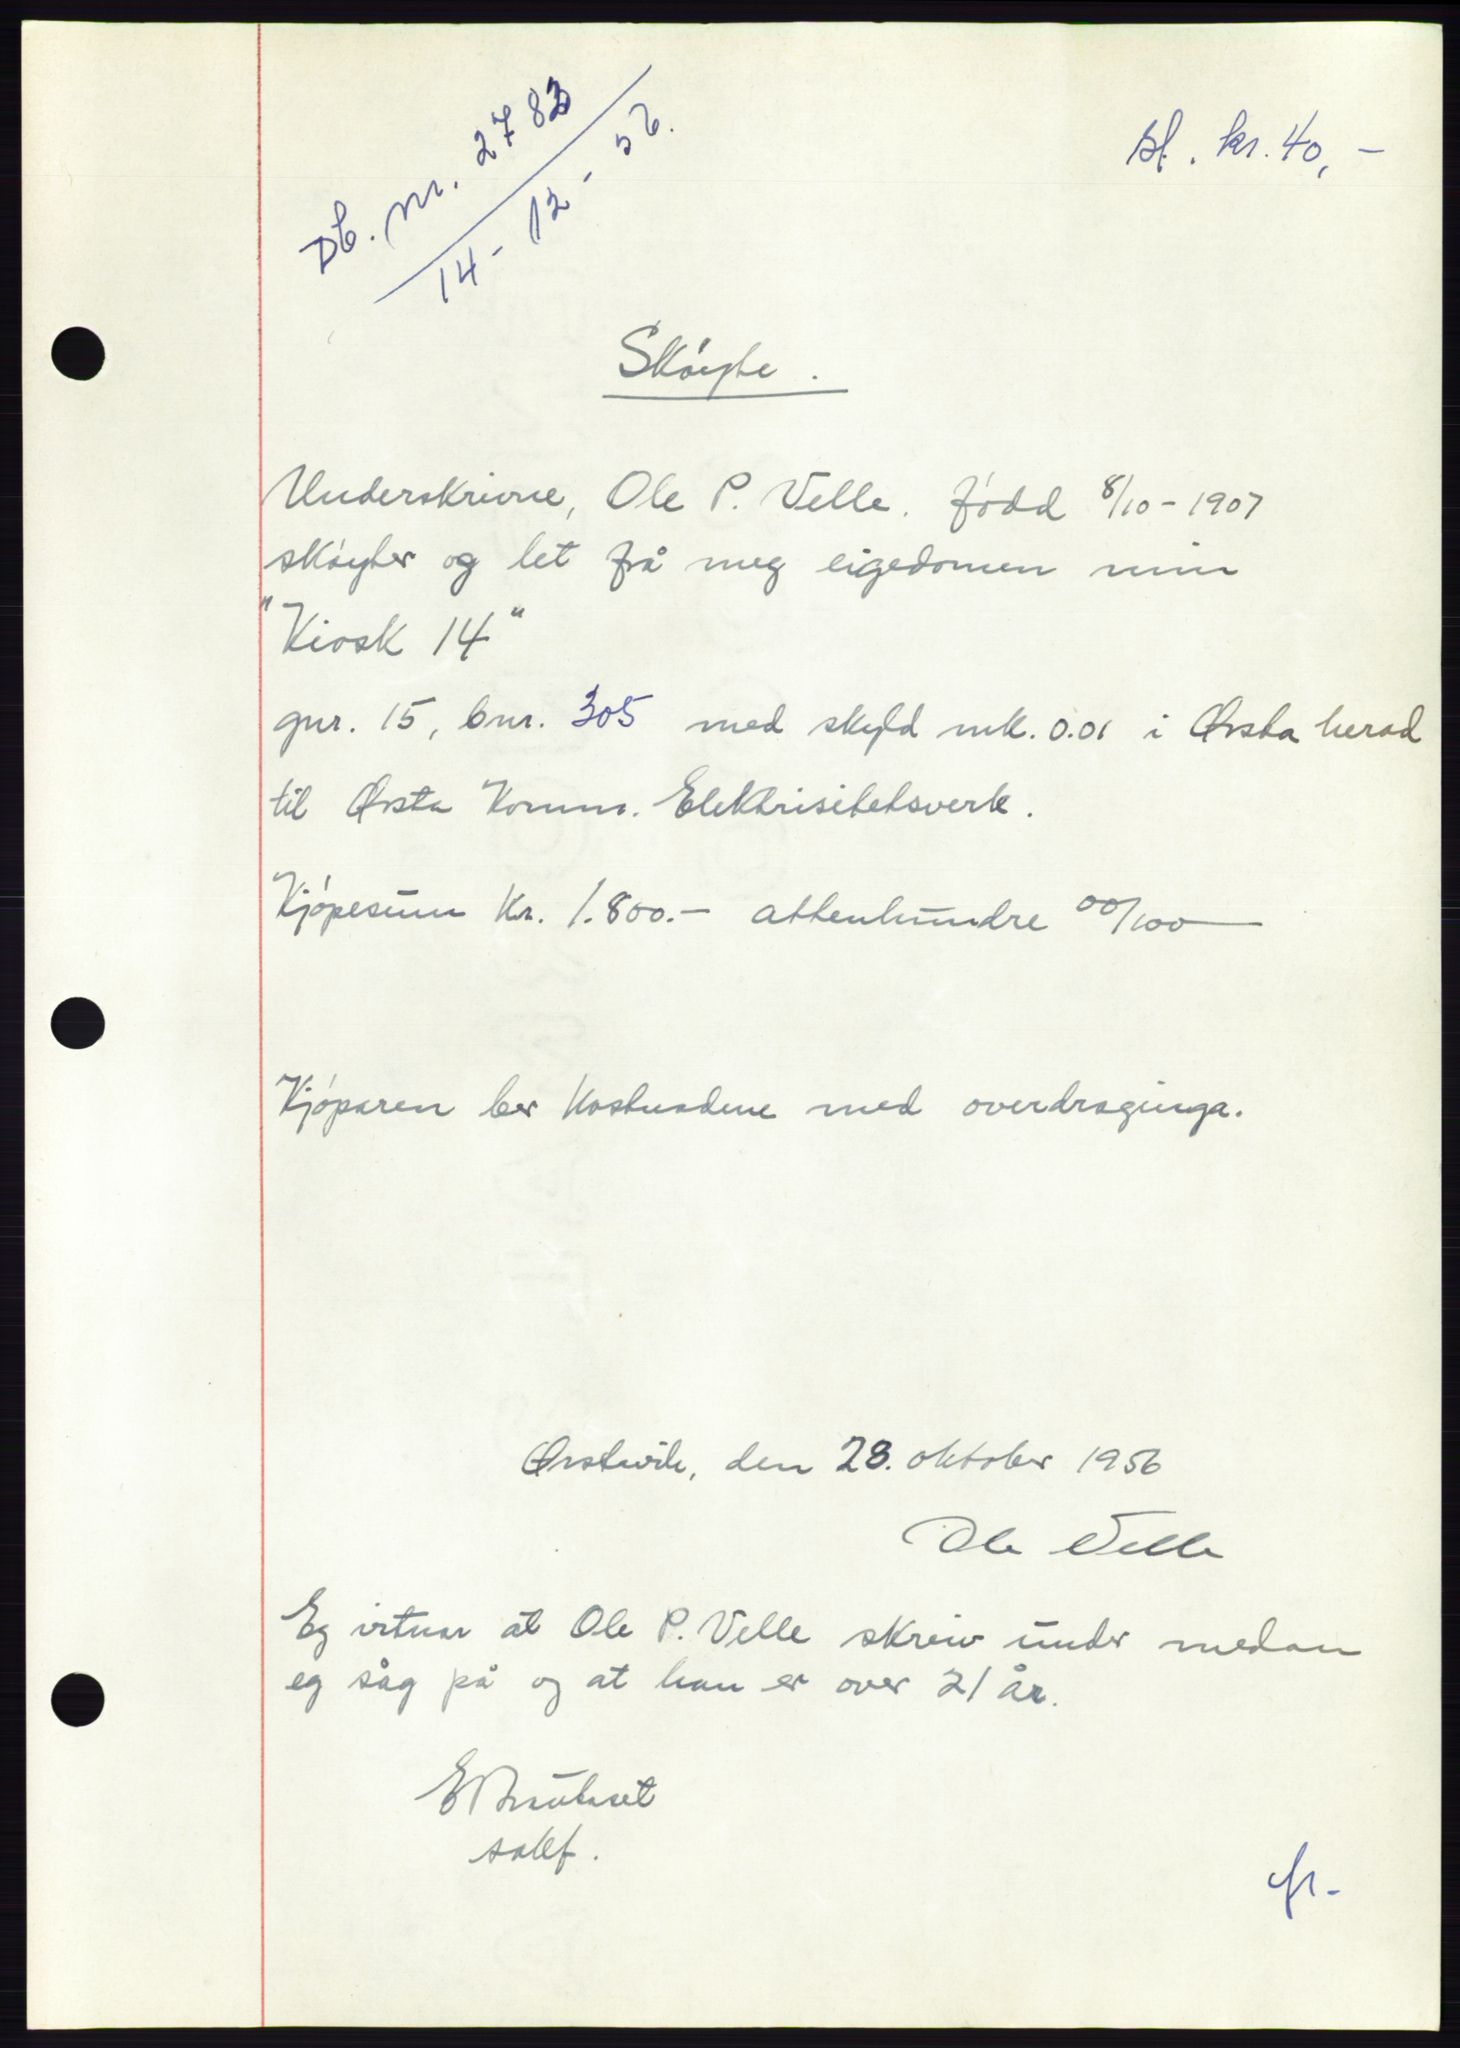 Db. nr. 2783
14-12-56.
st. kr. 40,-
Skøyte.
Underskrivne, Ole P. Velle. fødd 8/10-1907
skøyter og let frå meg eigedomen min
"Kiosk 14"
gnr. 15, bnr. 305 med skyld mk. 0.01 i Ørsta herad
til Ørsta Komm. Elektrisitetsverk.
Kjøpesum Kr. 1.800.- attenhundre 00/100
Kjøparen ber kostnadene med overdraginga.
Ørstavik, den 28. oktober 1956
Ole Velle
Eg vitnar at Ole P. Velle skreiv under medan
eg såg på og at han er over 21 år.
sakf.